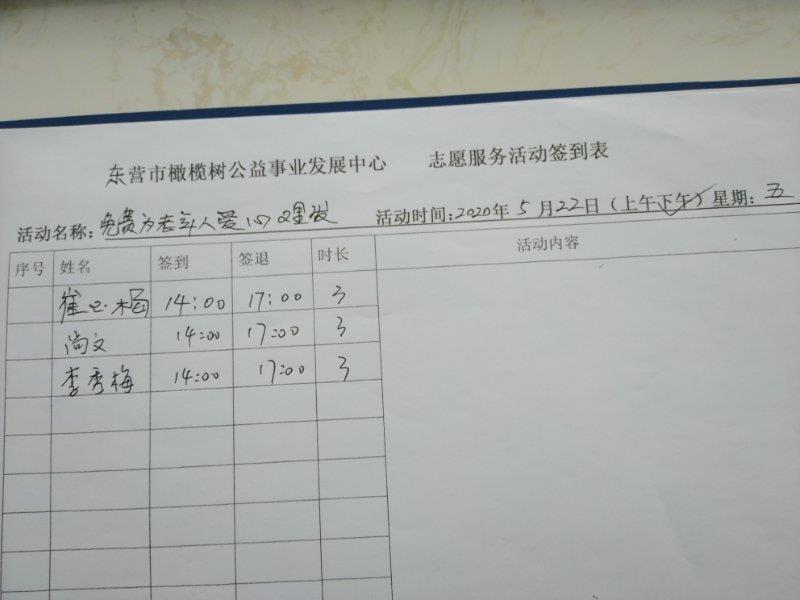 东营市橄榄树公益事业发展中心 志愿服务活动签到表
活动名称：免费为老年人爱心理发 活动时间：2020年5月22日（上午下午）星期：五
序号 姓名 签到 签退 时长 活动内容
崔 14:00 17:00 3
尚文 14:00 17:00 3
李秀梅 14:00 17:00 3